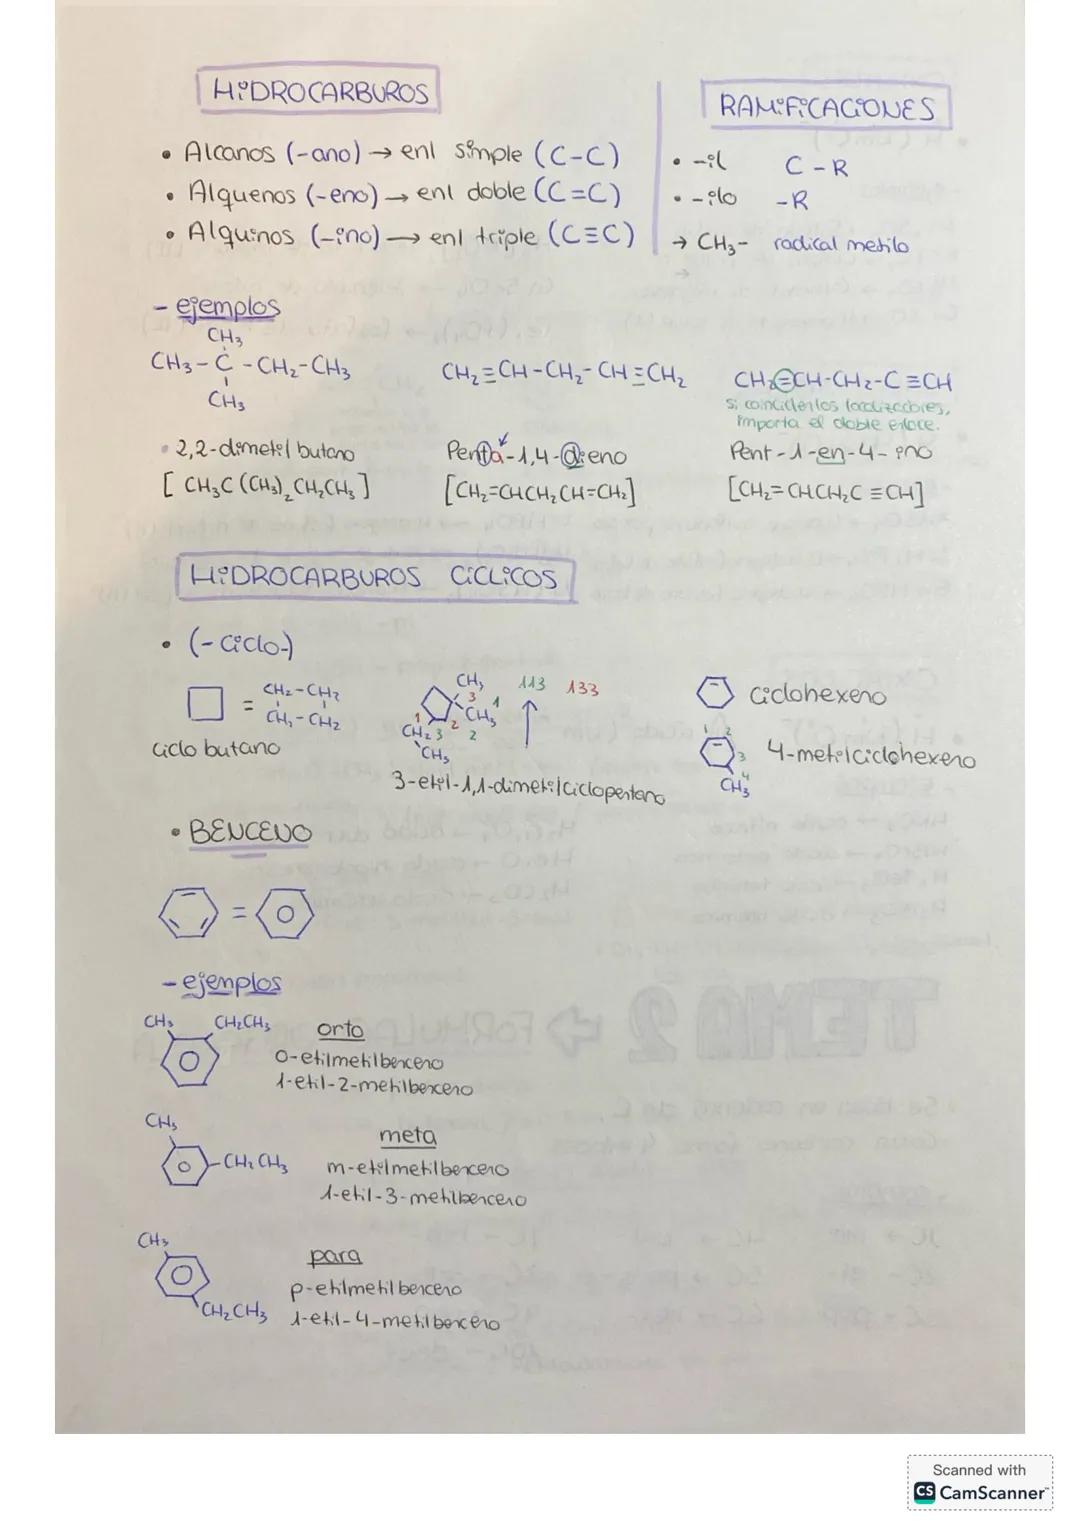 HIDROCARBUROS
• Alcanos (-ano) → enl simple (C-C)
• Alquenos (-eno) → enl doble (C=C)
• Alquinos (-ino) → enl triple (C≡C)
RAMIFICACIONES
• -il C-R
• -ilo -R
→ CH₃- radical metilo
- ejemplos
CH₃
CH₃-C-CH₂-CH₃
CH₃
• 2,2-dimetil butano
[CH₃C(CH₃)₂CH₂CH₃]
CH₂=CH-CH₂-CH=CH₂
Penta-1,4-dieno
[CH₂=CHCH₂CH=CH₂]
CH₂=CH-CH₂-C≡CH
si coinciden los localizadores,
importa el doble enlace.
Pent-1-en-4-ino
[CH₂=CHCH₂C≡CH]
HIDROCARBUROS CÍCLICOS
• (-ciclo-)
= CH₂-CH₂
CH₂-CH₂
ciclo butano
CH₃ 113 133
3 1
CH₃
1 2 2
CH₂ 3
CH₃
3-etil-1,1-dimetilciclopentano
ciclohexeno
1 2
3 4-metilciclohexeno
4
CH₃
• BENCENO
=
- ejemplos
CH₃ CH₂CH₃ orto
o-etilmetilbenceno
1-etil-2-metilbenceno
CH₃
meta
-CH₂CH₃ m-etilmetilbenceno
1-etil-3-metilbenceno
CH₃
para
p-etilmetilbenceno
CH₂CH₃ 1-etil-4-metilbenceno
Scanned with
CS CamScanner